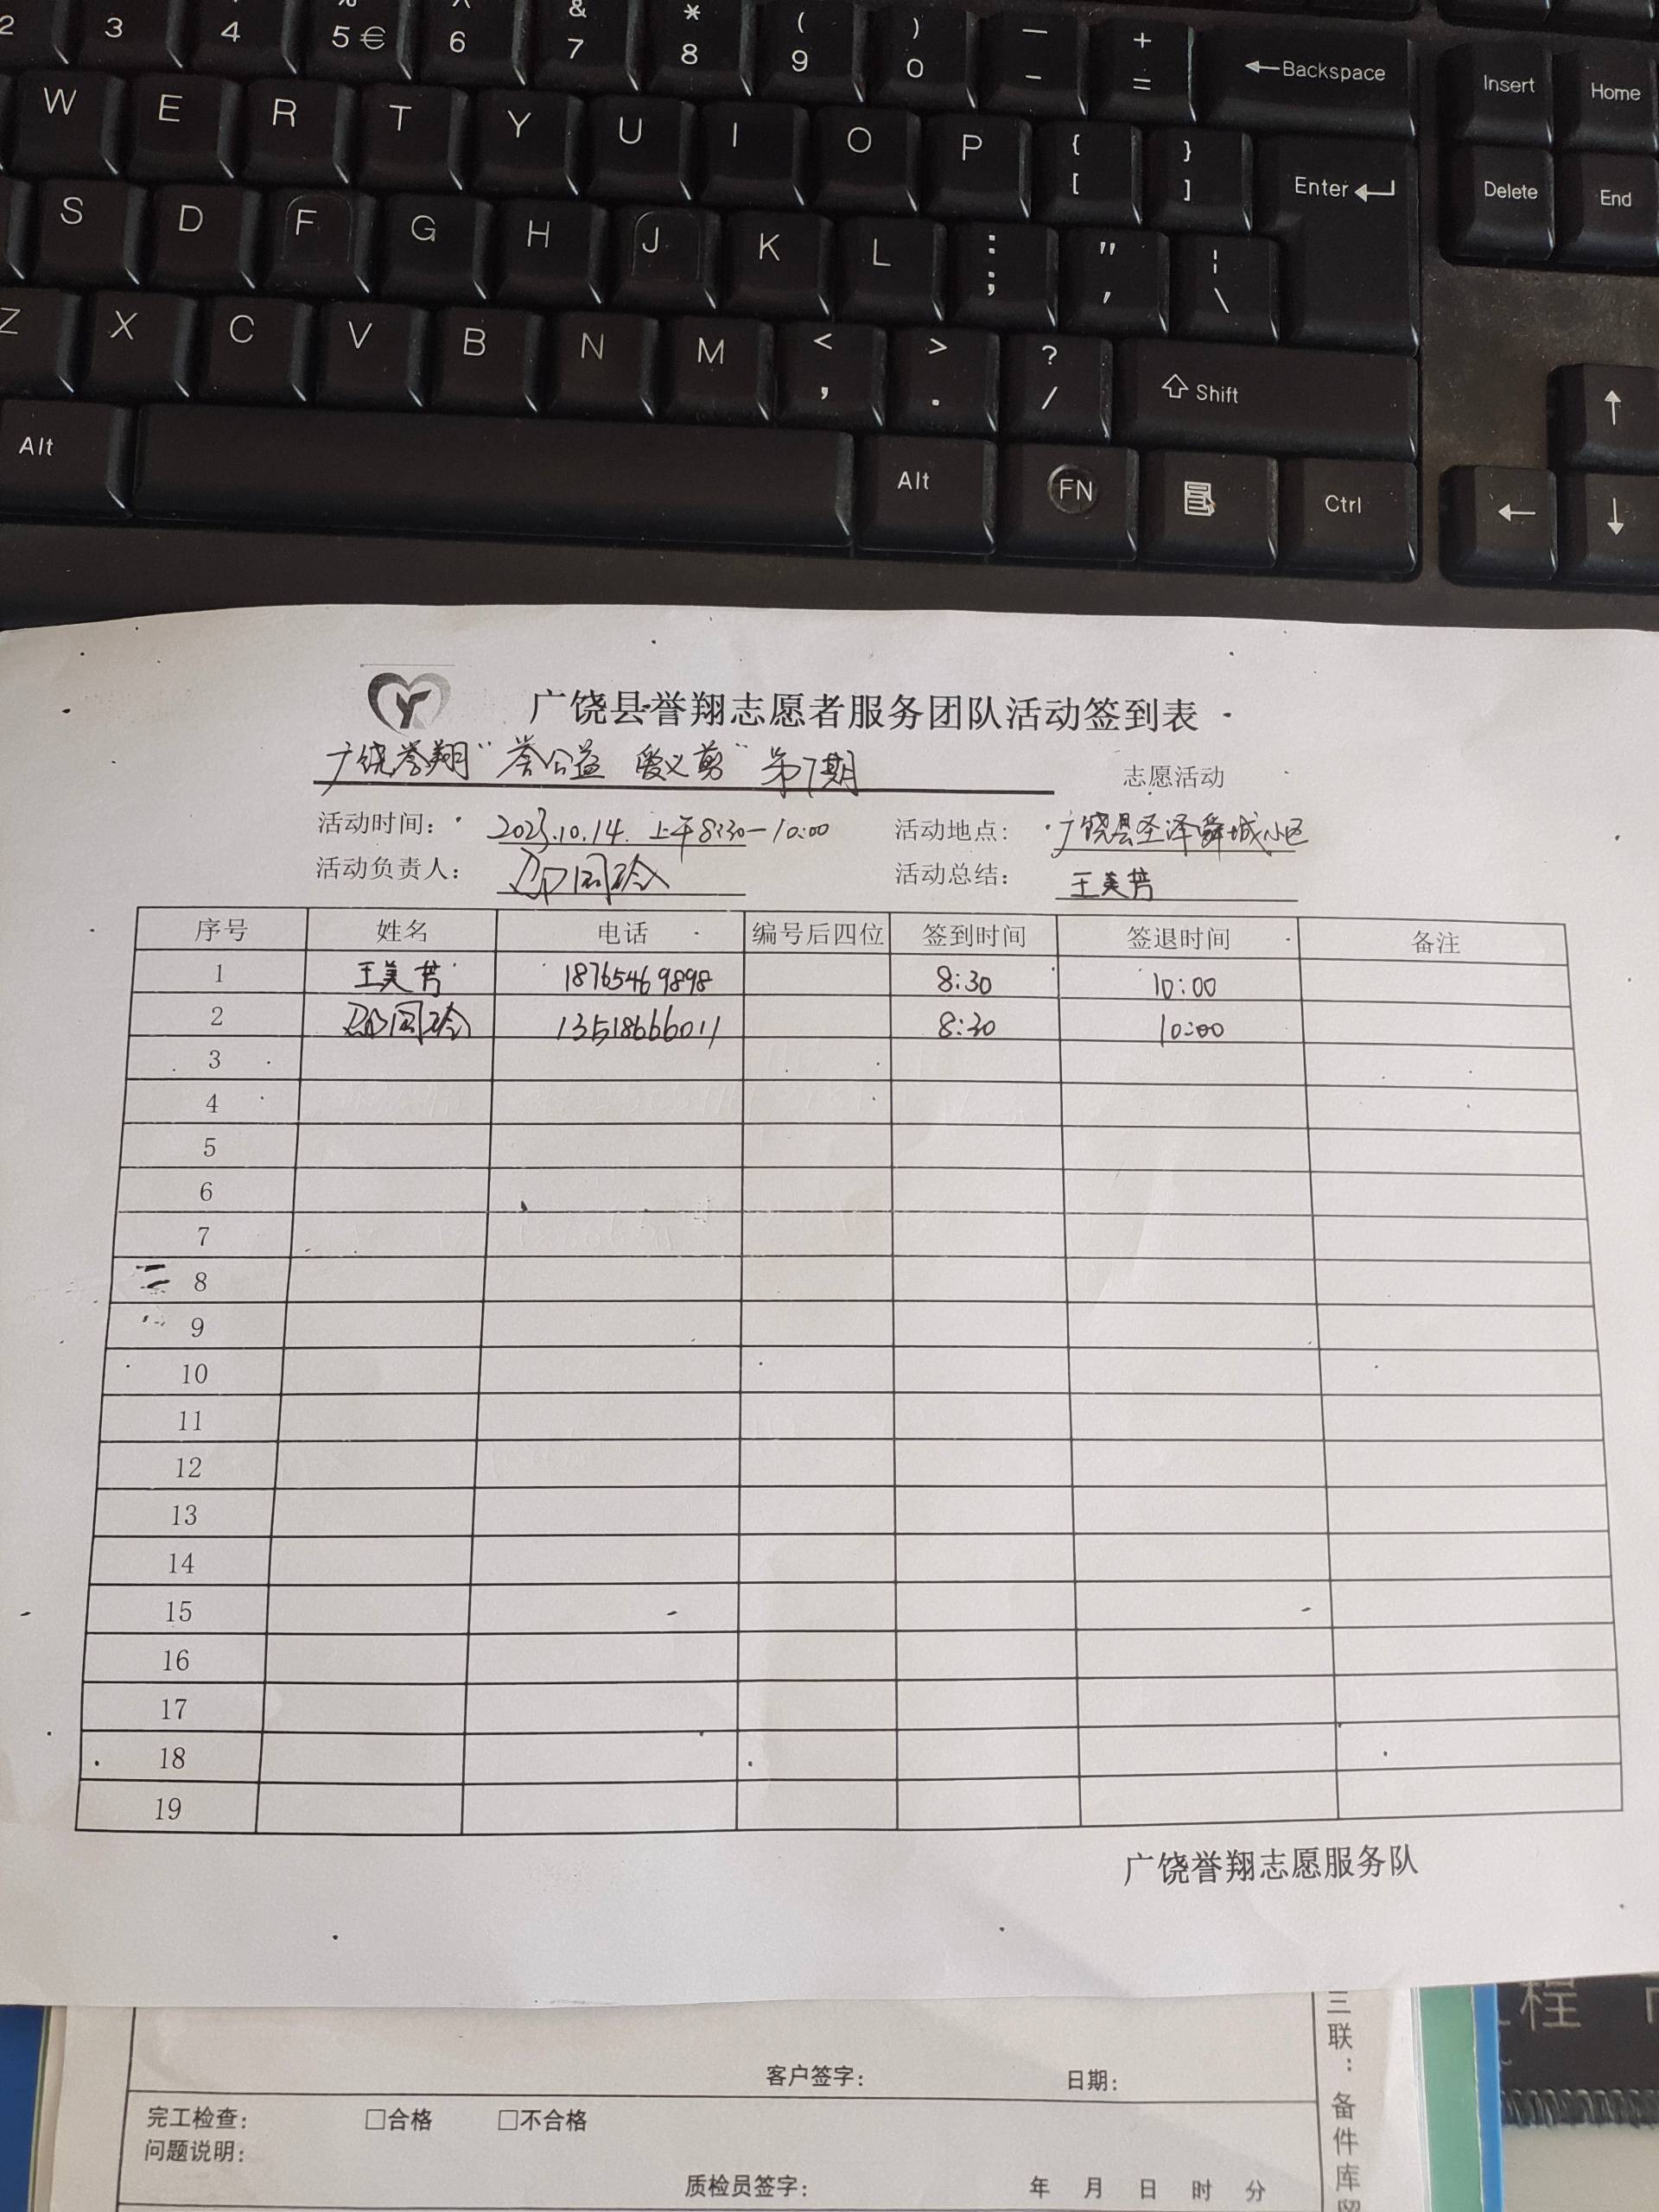 2 3 4 % 5 € ^ 6 & 7 * 8 ( 9 ) 0 — - + = ←Backspace Insert Home
W E R T Y U I O P { [ } ] Enter Delete End
S D F G H J K L : ; " ' ¦ \
Z X C V B N M < , > . ? / Shift ↑
Alt Alt FN Ctrl ← ↓
广饶县誉翔志愿者服务团队活动签到表
广饶誉翔“誉公益 爱义剪”第7期 志愿活动
活动时间: 2023.10.14. 上午8:30-10:00 活动地点: 广饶县圣泽舜城小区
活动负责人: 活动总结: 王美芳
序号 姓名 电话 编号后四位 签到时间 签退时间 备注
1 王美芳 18765469898 8:30 10:00
2 13518666011 8:30 10:00
3
4
5
6
7
8
9
10
11
12
13
14
15
16
17
18
19
广饶誉翔志愿服务队
客户签字: 日期:
完工检查: □合格 □不合格
问题说明:
质检员签字: 年 月 日 时 分
三联:备件库
程